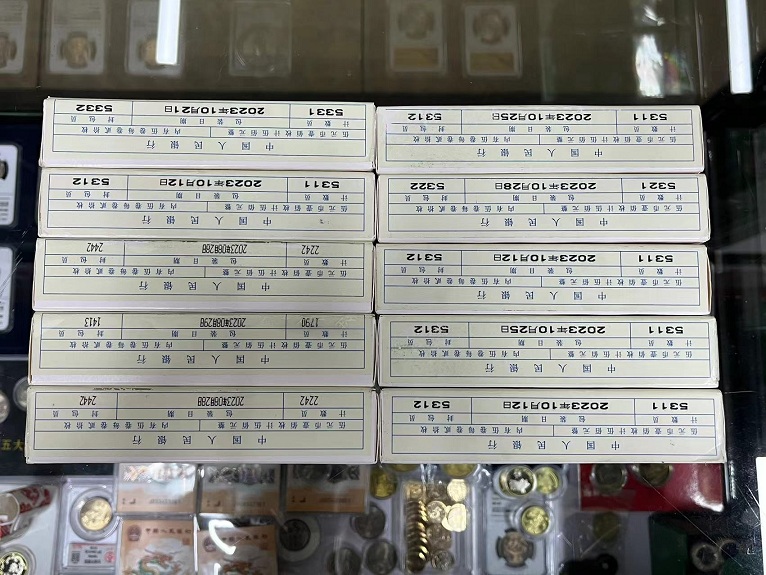 中国人民银行
伍元币壹佰枚计伍佰元整 内有伍卷每卷贰拾枚
计数员 包装日期 封包员
5311 2023年10月12日 5312
中国人民银行
伍元币壹佰枚计伍佰元整 内有伍卷每卷贰拾枚
计数员 包装日期 封包员
2242 2023年08月28日 2442
中国人民银行
伍元币壹佰枚计伍佰元整 内有伍卷每卷贰拾枚
计数员 包装日期 封包员
5311 2023年10月25日 5312
中国人民银行
伍元币壹佰枚计伍佰元整 内有伍卷每卷贰拾枚
计数员 包装日期 封包员
1790 2023年08月29日 1413
中国人民银行
伍元币壹佰枚计伍佰元整 内有伍卷每卷贰拾枚
计数员 包装日期 封包员
5311 2023年10月12日 5312
中国人民银行
伍元币壹佰枚计伍佰元整 内有伍卷每卷贰拾枚
计数员 包装日期 封包员
2242 2023年08月28日 2442
中国人民银行
伍元币壹佰枚计伍佰元整 内有伍卷每卷贰拾枚
计数员 包装日期 封包员
5321 2023年10月28日 5322
中国人民银行
伍元币壹佰枚计伍佰元整 内有伍卷每卷贰拾枚
计数员 包装日期 封包员
5311 2023年10月12日 5312
中国人民银行
伍元币壹佰枚计伍佰元整 内有伍卷每卷贰拾枚
计数员 包装日期 封包员
5311 2023年10月25日 5312
中国人民银行
伍元币壹佰枚计伍佰元整 内有伍卷每卷贰拾枚
计数员 包装日期 封包员
5331 2023年10月21日 5332
五大
中国人民银行